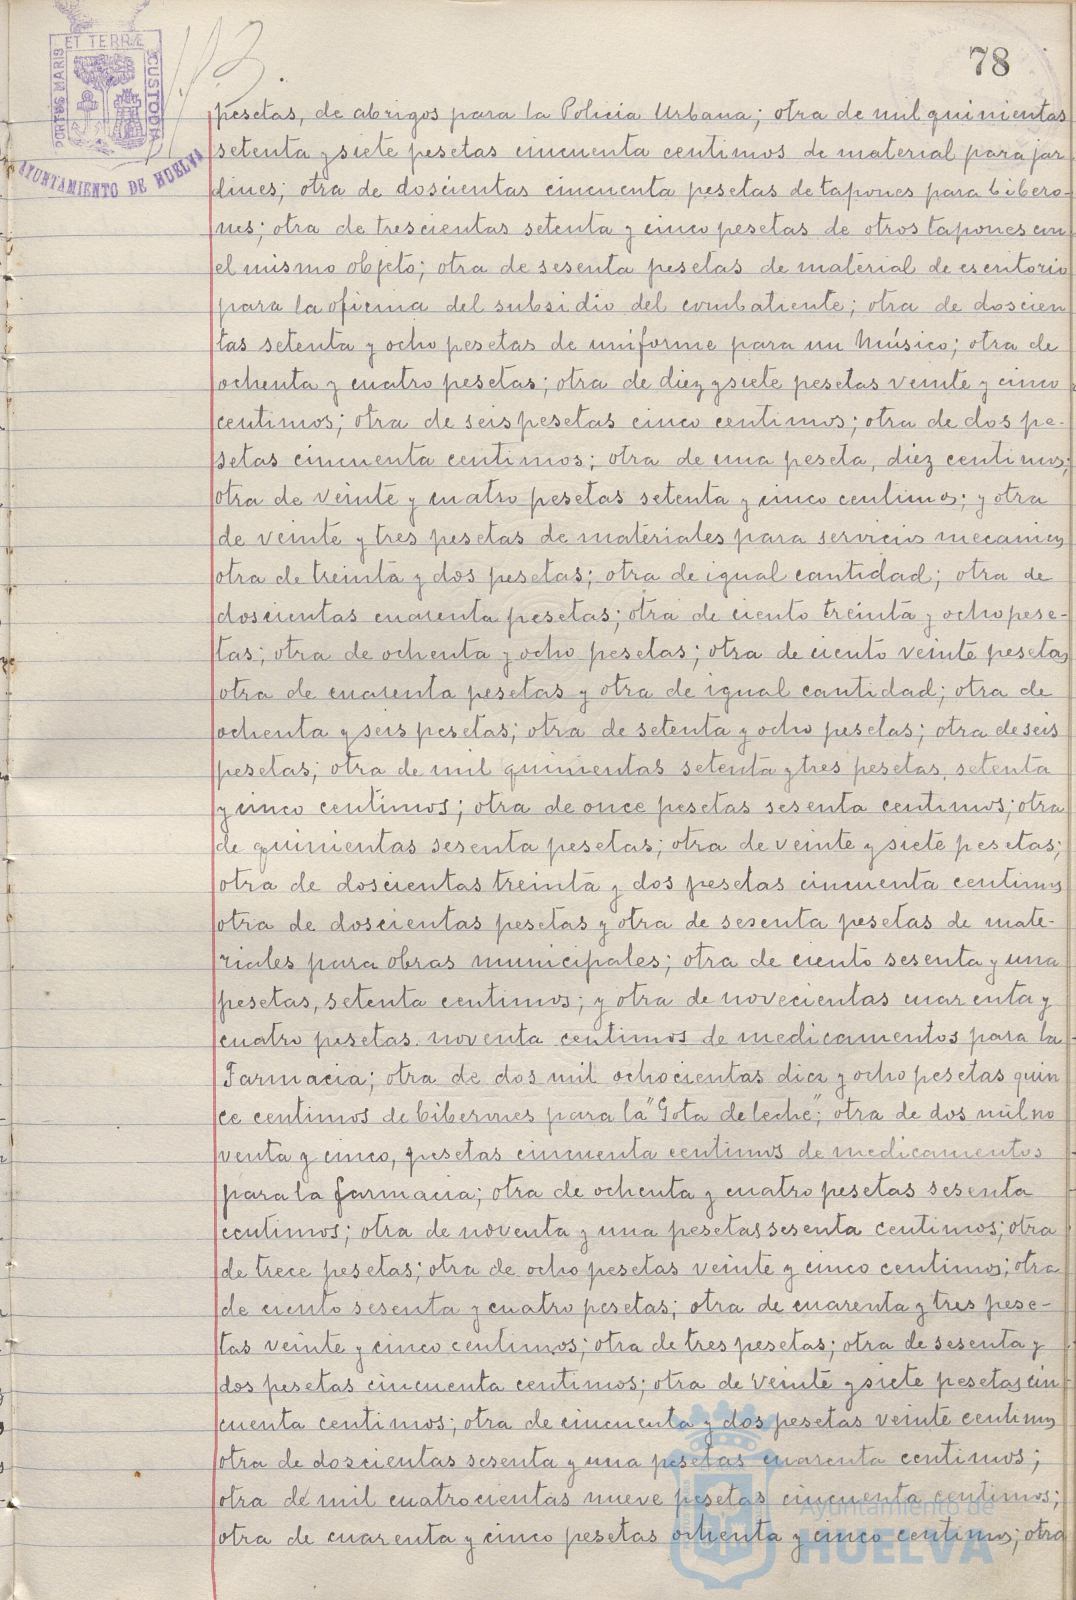 ET TERRÆ
PORTUS MARIS
CUSTODIA
AYUNTAMIENTO DE HUELVA
78
pesetas, de abrigos para la Policia Urbana; otra de mil quinientas
setenta y siete pesetas cincuenta centimos de material para jar
dines; otra de doscientas cincuenta pesetas de tapones para bibero-
nes; otra de trescientas setenta y cinco pesetas de otros tapones con
el mismo objeto; otra de sesenta pesetas de material de escritorio
para la oficina del subsidio del combatiente; otra de doscien
tas setenta y ocho pesetas de uniforme para un Músico; otra de
ochenta y cuatro pesetas; otra de diez y siete pesetas veinte y cinco
centimos; otra de seis pesetas cinco centimos; otra de dos pe-
setas cincuenta centimos; otra de una peseta, diez centimos;
otra de veinte y cuatro pesetas setenta y cinco centimos; y otra
de veinte y tres pesetas de materiales para servicios mecanicos
otra de treinta y dos pesetas; otra de igual cantidad; otra de
doscientas cuarenta pesetas; otra de ciento treinta y ocho pese-
tas; otra de ochenta y ocho pesetas; otra de ciento veinte pesetas
otra de cuarenta pesetas y otra de igual cantidad; otra de
ochenta y seis pesetas; otra de setenta y ocho pesetas; otra de seis
pesetas; otra de mil quinientas setenta y tres pesetas, setenta
y cinco centimos; otra de once pesetas sesenta centimos; otra
de quinientas sesenta pesetas; otra de veinte y siete pesetas;
otra de doscientas treinta y dos pesetas cincuenta centimos
otra de doscientas pesetas y otra de sesenta pesetas de mate-
riales para obras municipales; otra de ciento sesenta y una
pesetas, setenta centimos; y otra de novecientas cuarenta y
cuatro pesetas noventa centimos de medicamentos para la
Farmacia; otra de dos mil ochocientas diez y ocho pesetas quin
ce centimos de biberones para la "Gota de leche"; otra de dos mil no
venta y cinco, pesetas cincuenta centimos de medicamentos
para la farmacia; otra de ochenta y cuatro pesetas sesenta
centimos; otra de noventa y una pesetas sesenta centimos; otra
de trece pesetas; otra de ocho pesetas veinte y cinco centimos; otra
de ciento sesenta y cuatro pesetas; otra de cuarenta y tres pese-
tas veinte y cinco centimos; otra de tres pesetas; otra de sesenta y
dos pesetas cincuenta centimos; otra de veinte y siete pesetas cin
cuenta centimos; otra de cincuenta y dos pesetas veinte centimos
otra de doscientas sesenta y una pesetas cuarenta centimos;
otra de mil cuatrocientas nueve pesetas cincuenta centimos;
otra de cuarenta y cinco pesetas ochenta y cinco centimos; otra
Ayuntamiento de
HUELVA